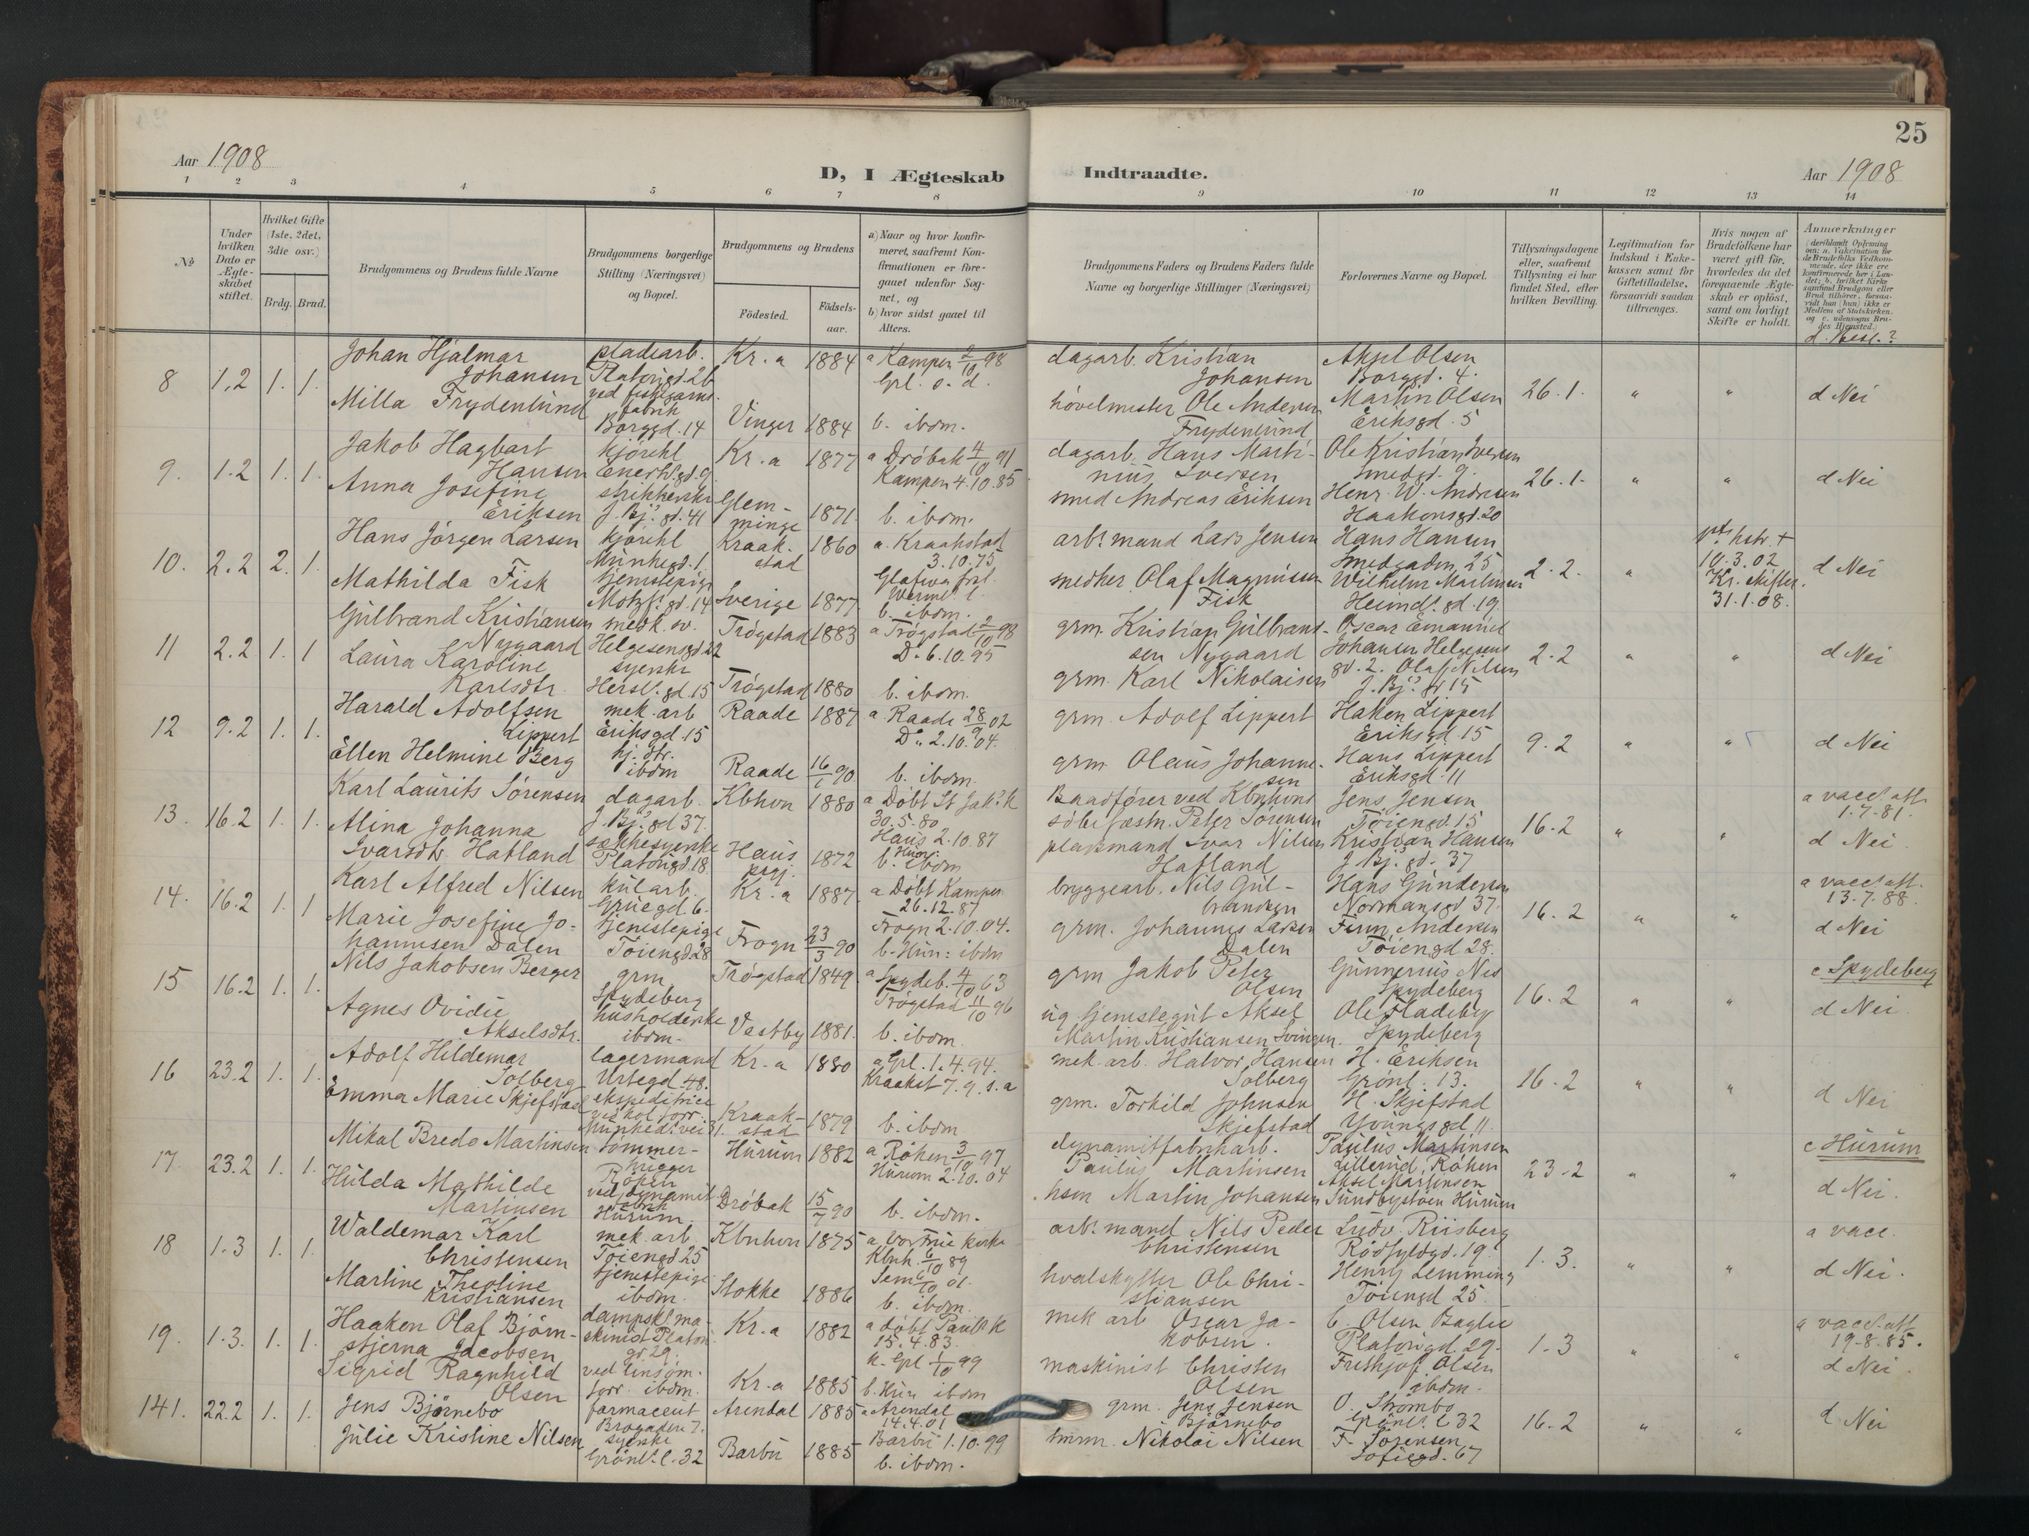 25
Aar 1908
D, I Ægteskab Indtraadte.
Aar 1908
1 2 3 4 5 6 7 8 9 10 11 12 13 14
№
Under hvilken Dato er Ægteskabet stiftet.
Hvilket Gifte (1ste, 2det, 3die osv.)
Brdg. Brud.
Brudgommens og Brudens fulde Navne
Brudgommens borgerlige Stilling (Næringsvei) og Bopæl.
Brudgommens og Brudens
Fødested.
Fødselsaar.
a) Naar og hvor konfirmeret, saafremt Konfirmationen er foregaaet udenfor Sognet, og
b) hvor sidst gaaet til Alters.
Brudgommens Faders og Brudens Faders fulde Navne og borgerlige Stillinger (Næringsvei)
Forlovernes Navne og Bopæl.
Tillysningsdagene eller, saafremt Tillysning ei har fundet Sted, efter hvilken Bevilling.
Legitimation for Indskud i Enkekassen samt for Giftetilladelse, forsaavidt saadan tiltrænges.
Hvis nogen af Brudefolkene har været gift før, hvorledes da det foregaaende Ægteskab er opløst, samt om lovligt Skifte er holdt.
Anmerkninger
(deriblandt Oplysning om: a. Vakcination for de Brudefolks Vedkommende, der ikke ere konfirmerede her i Landet; b. hvilket Kirkesamfund Brudgom eller Brud tilhører, forsaavidt han (hun) ikke er Medlem af Statskirken, og c. udensogns Brudes Hjemsted.
d. Besl.?
8 1.2 1. 1. Johan Hjalmar Johansen pladearb. Platöugd. 26 Kr.a 1884 a Kampen 2/10 98 Gpl. o. d. dagarb. Kristian Johansen Aksel Olsen Borggd. 4. 26.1. " " d Nei
Milla Frydenlund ved fiskegarnsfabrik Borggd. 14 Vinger 1884 b. ibdm. høvelmester Ole Andersen Frydenlund Martin Olsen Eriksgd. 5
9. 1.2 1. 1. Jakob Hagbart Hansen kjørekl Enerh.gd. 9 Kr.a 1877 a Drøbak 4/10 91 Kampen 4.10.85 dagarb. Hans Martinius Iversen Ole Kristian Iversen Smedgd. 9. 26.1. " " d Nei
Anna Josefine Eriksen strikkerske J. Bj.s gd. 41 Glemminge 1871. b. ibdm. smed Andreas Eriksen Henr. W. Andresen Haakonsgd. 20
10. 2.2 2. 1. Hans Jørgen Larsen kjørekl Munkegd. 1 Kraakstad 1860 a. Kraakstad 3.10.75 arb.smand Lars Jensen Hans Hansen Smedgaden 25 2.2. " 10.3.02 Kr. skifter. 31.1.08. d Nei
Mathilda Fisk tjenestepige Motzf. gd. 14 Sverige 1877 b. ibdm. snedker Olaf Magnussen Fisk Wilhelm Martinsen Heimd.s gd. 19
11 2.2 1. 1 Gulbrand Kristiansen Nygaard snedk. sv. Helgesensgd 22 Trøgstad 1883 a Trøgstad 2/10 98 D. 6.10.95 grm. Kristian Gulbrandsen Nygaard Oscar Emanuel Johansen Helgesensgd. 2. 2.2 " " d Nei
Laura Karoline Karlsdtr. syerske Hersl.s gd. 15 Trøgstad 1880 b. ibdm. grm. Karl Nikolaisen Olaf Nilsen J. Bj.s gd 15
12 9.2 1. 1. Harald Adolfsen Lippert mek. arb Eriksgd. 15 Raade 1887 a. Raade 28/9 02 D. 2.10.04. grm. Adolf Lippert Haken Lippert Eriksgd. 15 9.2 " " d Nei
Ellen Helmine Berg hj. dtr. ibdm Raade 16/1 90 b. ibdm. grm. Olaus Johannesen Hans Lippert Eriksgd. 11
13. 16.2 1. 1. Karl Laurits Sørensen dagarb. J. Bj.s gd 37. Kbhvn 1880 a Døbt St Jak.s k 30.5.80 Baadfører ved Kbnhvns søbefæstn. Peter Sørensen Jens Jensen Tøiengd. 15 16.2 " " a vacc. att. 1.7.81. d Nei.
Alina Johanna Ivarsdtr. Hatland sækkesyerske Platöugd. 18. Haus 1872 Haus 2.10.87 b. ibdm pladsmand Ivar Nilsen Hatland Kristian Hansen J. Bj.s gd. 37
14. 16.2 1. 1 Karl Alfred Nilsen kularb. Gruegd. 6. Kr.a 1887. a Døbt Kampen 26.12.87 bryggearb. Nils Gulbrandsen Hans Gundersen Normansgd 37. 16.2 " " a vacc. att. 13.7.88. d Nei
Marie Josefine Johannesen Dalen tjenestepige Tøiengd 28 Frogn 23/3 90 Frogn 2.10.04. b. Hun: ibdm grm. Johannes Larsen Dalen Finn Andersen Tøiengd 28.
15 16.2 1. 1. Nils Jakobsen Berger grm Spydeberg Trøgstad 1849 a Spydeb. 4/10 63 grm Jakob Peter Olsen Gunnerius Næs Spydeberg 16.2 " " c Spydeberg d Nei
Agnes Ovidie Akselsdtr. husholderske ibdm. Vestby 1881. Trøgstad 11/10 96 b. ibdm. ug tjenestegut Aksel Martin Kristiansen Svingen Ole Fladeby Spydeberg
16 23.2 1. 1. Adolf Hildemar Solberg lagermand Urtegd 48. Kr.a 1880 a Gpl. 1.4.94. mek. arb. Halvor Hansen Solberg H. Eriksen Grønl. 13. 16.2 " " d Nei
Emma Marie Skjefstad ekspeditrice Munkedsvei 31. Kraakstad 1879 Kraakst 7.9.s.a b. ibdm. grm. Torkild Johnsen Skjefstad H. Skjefstad Youngsgd 11.
17. 23.2 1. 1. Mikal Bredo Martinsen tømmerhugger Røken Hurum 1882 a Røken 3/10 97 dynamitfabrikarb. Paulus Martinsen Paulus Martinsen Lillerud, Røken 23.2 " " c Hurum d Nei.
Hulda Mathilde Martinsen ved dynamitfabrik Hurum Drøbak 15/7 90 Hurum 2.10.04 b. ibdm. hsm Martin Johansen Aksel Martinsen Sundbystøen Hurum
18 1.3 1. 1. Waldemar Karl Christensen mek. arb Tøiengd 25 Kbnhvn 1875 a Vor Frue kirke Kbnh. 6/10 89 arb.smand Nils Peder Christensen Ludv Riisberg Rødfyldgd. 19. 1.3. " " a vacc. d Nei.
Martine Theoline Kristiansen tjenestepige ibdm. Stokke 1886 Sem 6/10 01. b. ibdm. hvalskytter Ole Christiansen Henry Lemming Tøiengd 25.
19. 1.3. 1. 1. Haaken Olaf Bjørnstjerna Jacobsen dampsk.s maskinist Platöugd. 29. Kr.a 1882 a døbt Paul.s k 15.4.83. mek arb Oscar Jakobsen. C. Olsen Baglie Platöugd 29. 1.3 " " a vacc. att 19.8.85. d Nei
Sigrid Ragnhild Olsen ved linsøm.forr. ibdm. Kr.a 1885 k. Gpl 1/10 99 b. Hun ibdm maskinist Christen Olsen Frethjof Olsen ibdm.
141. 22.2 1. 1. Jens Bjørnebo farmaceut Brogaden 7. Arendal 1885 a Arendal 14.4.01 grm. Jens Jensen Bjørnebo O. Strømbo Grönl.s l 32 16.2 " " d Nei
Julie Kristine Nilsen syerske Grønl.s l. 32 Barbu 1885 Barbu 1.10.99 b. ibdm. smm. Nikolai Nilsen F. Sørensen Sofiegd. 67